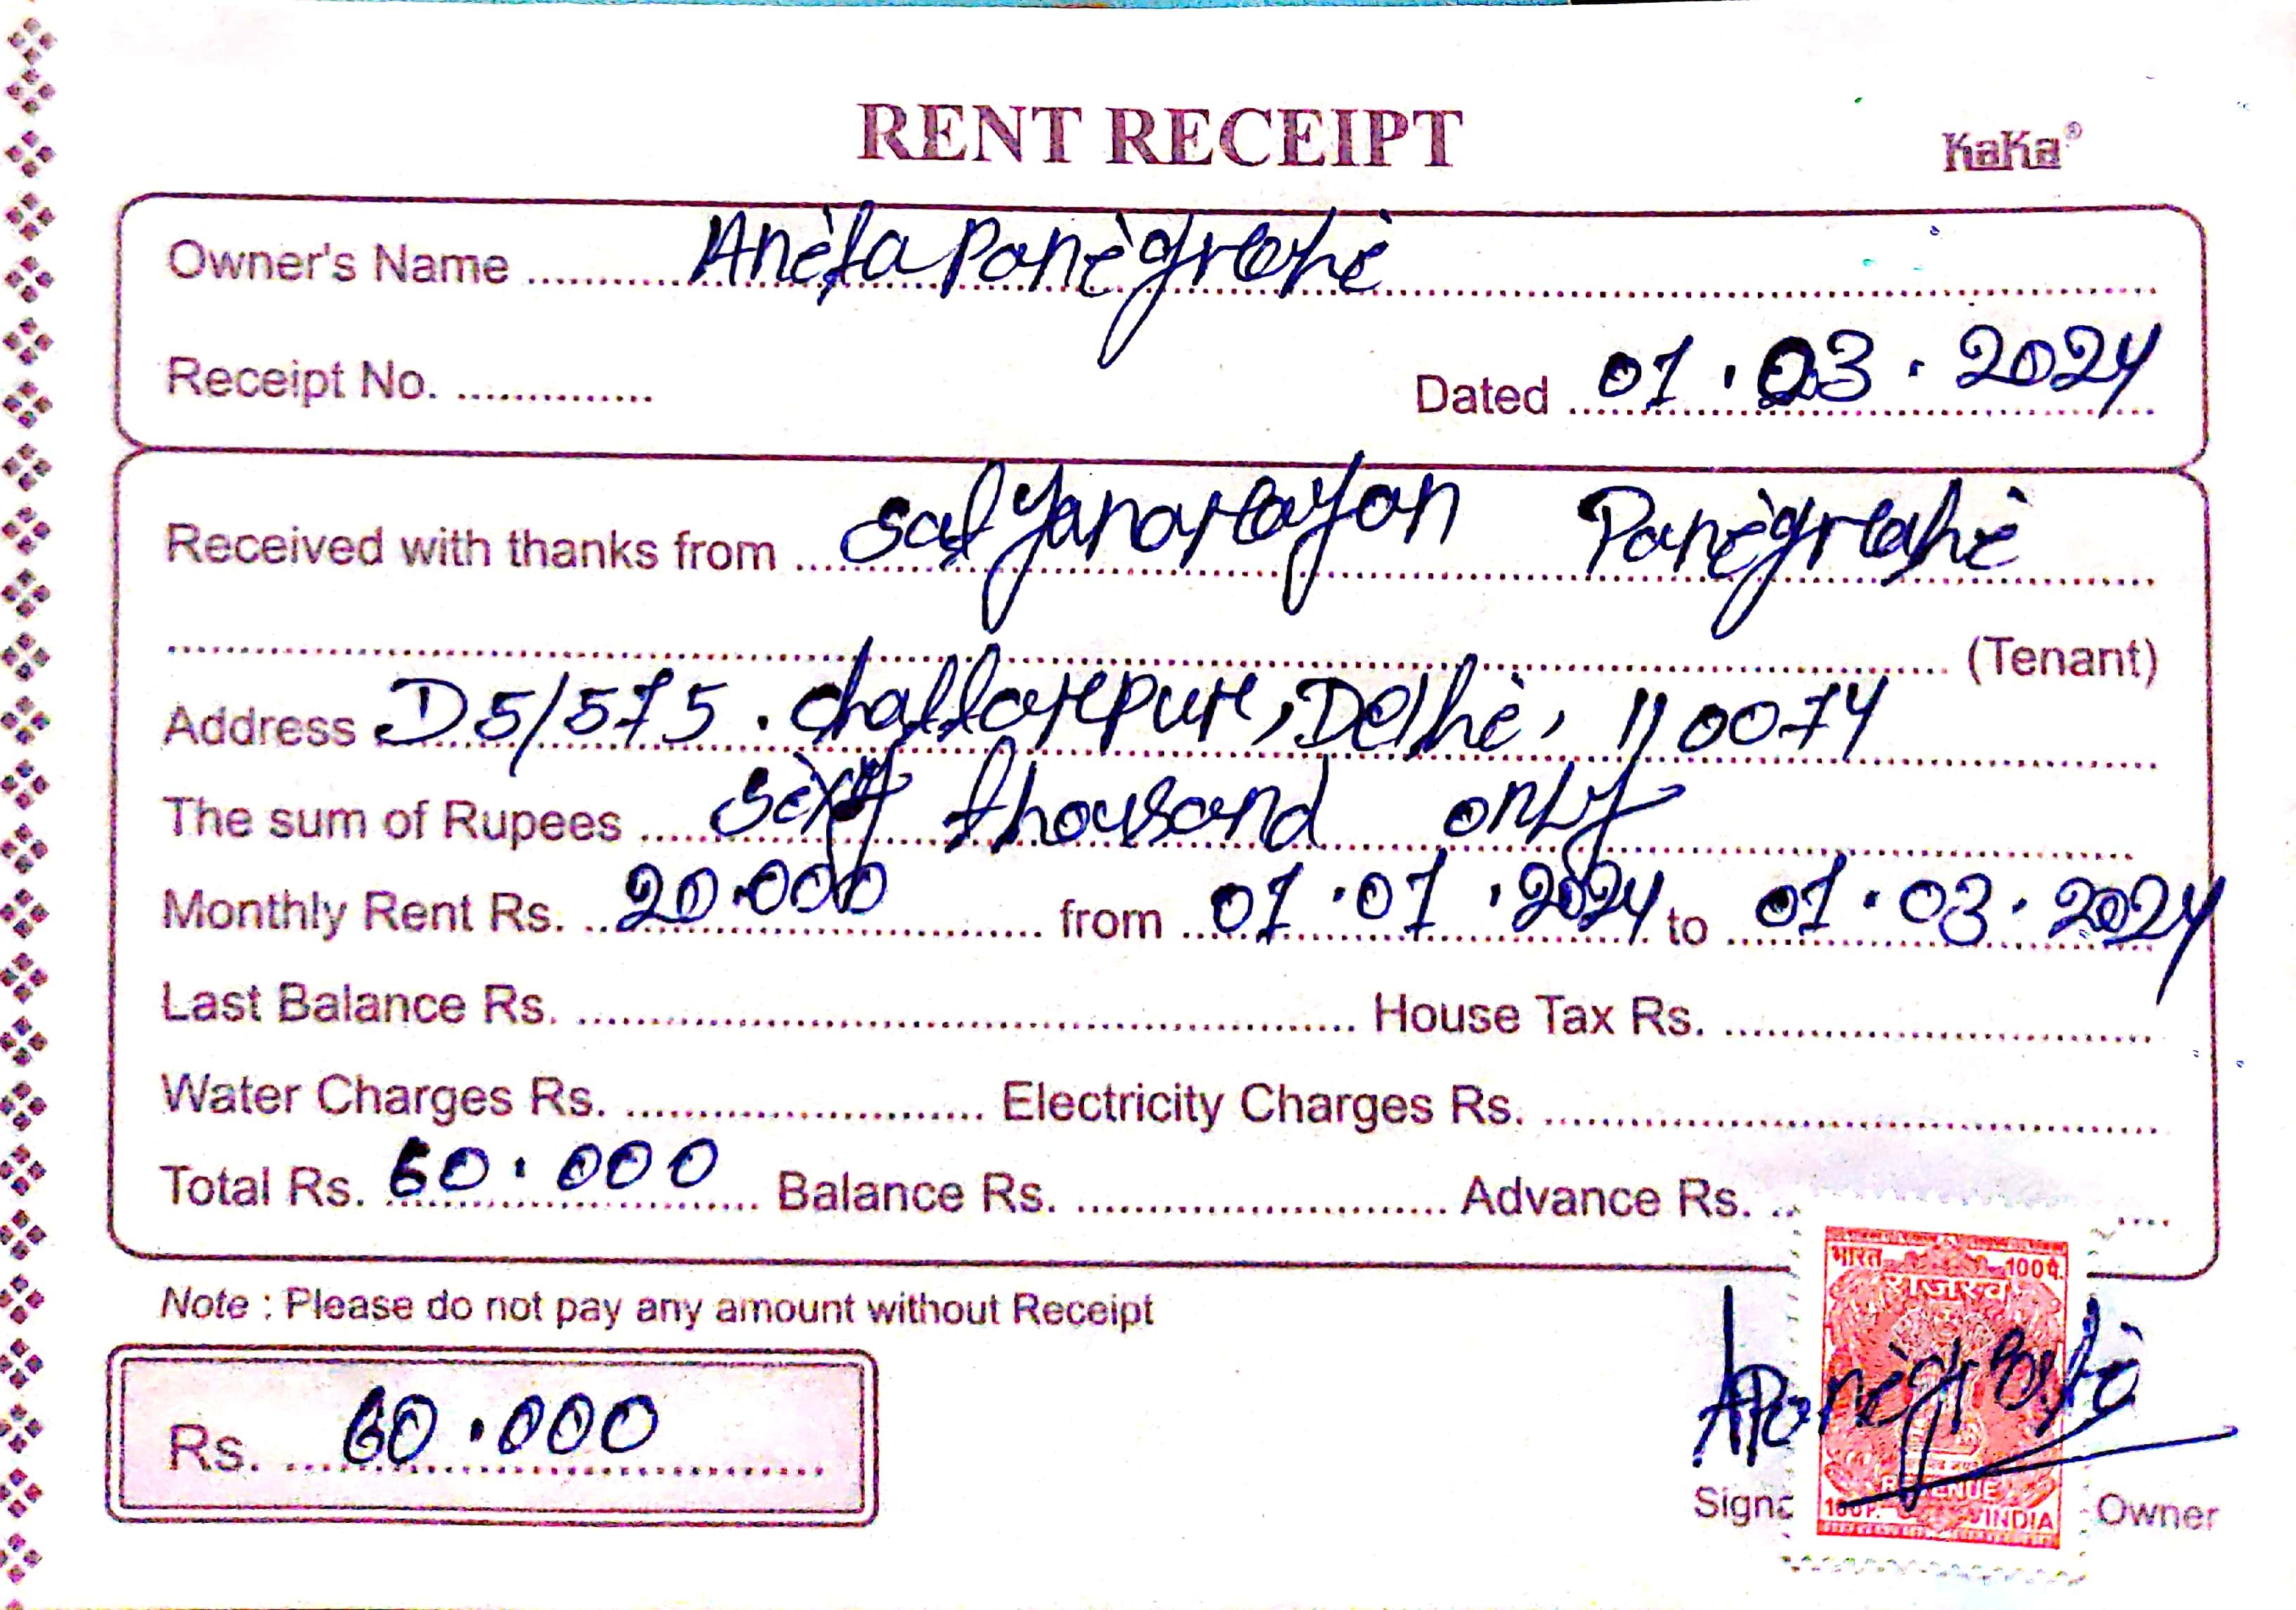 RENT RECEIPT
KaKa®
Owner's Name Anita Panigrahi
Receipt No. Dated 01.03.2024
Received with thanks from Satyanarayan Panigrahi
(Tenant)
Address D5/575. chattarpur, Delhi, 110074
The sum of Rupees Sixty thousand only
Monthly Rent Rs. 20.000 from 01.01.2024 to 01.03.2024
Last Balance Rs. House Tax Rs.
Water Charges Rs. Electricity Charges Rs.
Total Rs. 60.000 Balance Rs. Advance Rs.
Note : Please do not pay any amount without Receipt
भारत 100पै.
राजस्व
Rs. 60.000
APanigrahi
REVENUE
100P. INDIA
Owner